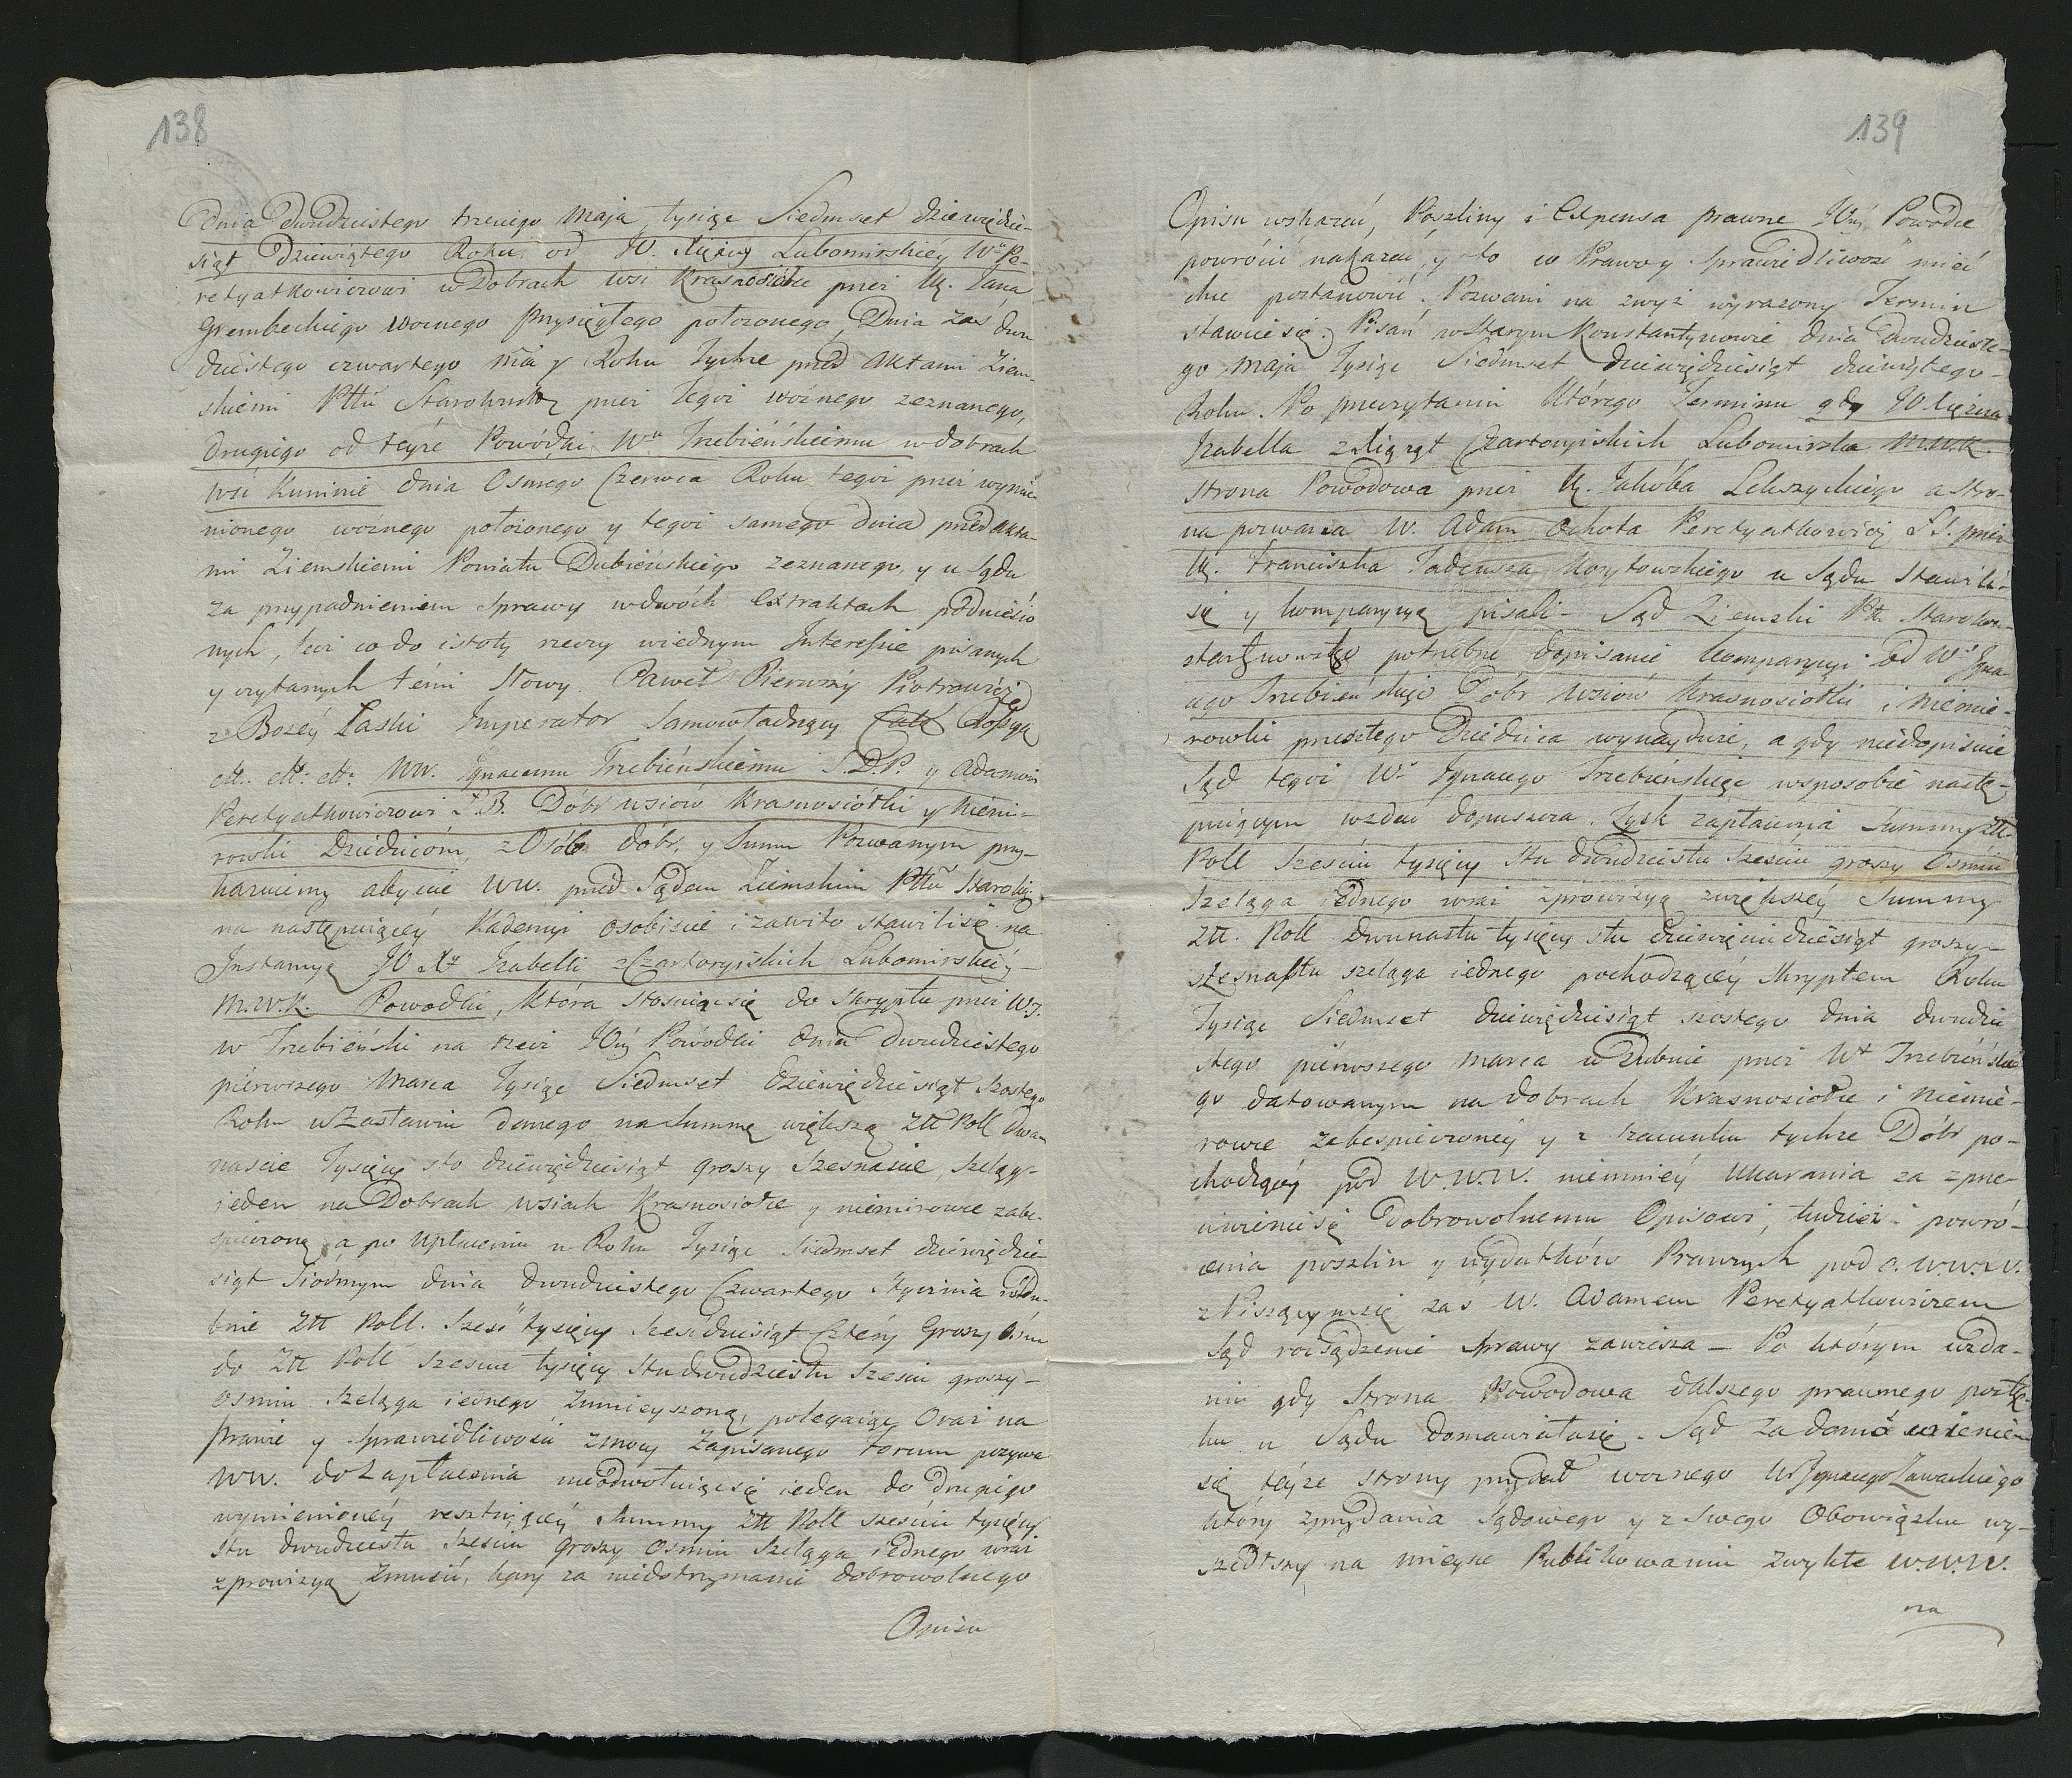 138
Dnia Dwudziestego trzeciego Maja tysiąc Siedmset dziewiędzie-
siąt Dziewiątego Roku od JO. Xiężny Lubomirskiéy Wu Pe-
retyatkowiczowi w Dobrach wsi Krasnosiółce przez Ur. Jana
Grembeckiego Woznego Przysięgłego położonego, Dnia zaś dwu
dziestego czwartego ma y Roku Tychże przed Aktami Ziem-
skiemi Pttu Starokonstt przez Tegoż woźnego zeznanego,
Drugiego od teyże Powódki Wu Trzebińskiemu w dobrach
Wsi Kuninie dnia Osmego Czerwca Roku tegoż przez wymie-
nionego woźnego położonego y tegoż samego dnia przed akta-
mi Ziemskiemi Powiatu Dubieńskiego zeznanego, y u Sądu
za przypadnieniem Sprawy w dwóch Extraktach podniesio
nych, lecz co do istoty rzeczy wiednym Interessie pisanych
y czytanych témi Słowy. Paweł Pierwszy Piotrowicz
z Bożéy Łaski Imperator Samowładnący Całą Rossyą
ett. ett. ett. WW. Ignacemu Trzebińskiemu S.D.P. y Adamowi
Peretyatkowiczowi S.B. Dóbr wsiów Krasnosiółki y Niemi-
rowki Dziedzicóm, z Osób dóbr, y Summ Pozwanym przy-
kazuiemy abyscie WW. przed Sądem Ziemskim Pttu Starokj
na następuiącéy Kadencyi osobiscie i zawito stawilisię na
Instancyą JO Xy Izabelli z Czartoryiskich Lubomirskiéy
M.W.K. Powodki, która stosuiącsię do Skryptu przez W J.
W Trzebiński na rzecz JOy Powodki dnia Dwudziestego
pierwszego Marca Tysiąc Siedmset dziewiędziesiąt Szostego
Roku w Zasławiu danego na Summę większą Ztt Poll Dwa
nascie Tysięcy sto dziewiędziesiąt groszy Szesnascie, Szeląg-
ieden na Dobrach wsiach Krasnosiołce y niemirowce zabe-
spieczoną, a po upłaceniu w Roku Tysiąc Siedmset dziewiędzie-
siąt Siodmym dnia dwudziestego Czwartego Stycznia w Du-
bnie Ztt Poll. Szesć tysięcy Sześćdziesiąt Cztéry Groszy ośm
do Ztt Poll Szesciu tysięcy Stu dwudziestu Szesciu groszy-
osmiu Szeląga iednego Zmnieyszoną, polegaiąc Oraz na
prawie y Sprawiedliwości z mocy Zapisanego Forum pozywa
WW. do Zapłacenia nieodwołuiącsię ieden do drugiego
wymienionéy resztuiącéy Summy Ztt Poll szesciu tysięcy
stu dwudziestu Szesciu groszy osmiu Szeląga iednego wraz
z prowizyą Zmusić, kary za niedotrzymanie dobrowolnego
Opisu
139
Opisu wskazać, Poszliny i Expensa prawne JOy Powodce
powrócić nakazać, y to w Prawo y Sprawiedliwość mieć
chce postanowić. Pozwani na zwyż wyrażony Termin
stawcie się. Pisań w Starym Konstantynowie dnia dwudzieste-
go Maja Tysiąc Siedmset dziewiędziesiąt dziewiątego
Roku. Po przeczytaniu Którego Terminu gdy JO Xiężna
Izabella z Xiążąt Czartoryiskich Lubomirska M.W.K.
strona Powodowa przez Ur. Jakóba Lelszyckiego a stro-
na pozwana W. Adam Ochota Peretyatkowicz S.S. przez
Ur. Franciszka Tadeusza Korytowskiego u Sądu stawili-
się y komparycyą pisali - Sąd Ziemski Ptt Starokon-
stantynowski potrzebne dopisanie komparycyi od Wo Igna-
cego Trzebińskiego Dóbr Wsiów Krasnosiołki i Niemi-
rowki przeszłego Dziedzica wynayduie, a gdy niedopisuie
Sąd tegoż Wo Ignacego Trzebińskiego wsposobie nastę-
puiącym wzdać dopuszcza. Zysk zapłacenia Summy Ztt
Poll Szesciu tysięcy Stu dwudziestu Szesciu groszy Osmiu
Szeląga iednego wraz z prowizyą z większéy Summy
Ztt. Poll Dwunastu tysięcy stu dziewięciudziesiąt groszy
szesnastu szeląga iednego pochodzącéy Skryptem Roku
Tysiąc Siedmset dziewiędziesiąt szostego dnia dwudzie
stego piérwszego Marca w Dubnie przez Wo Trzebińskie
go datowanym na Dobrach Krasnosiołce i Niemie-
rowce zabespieczonéy y z szacunku tychże Dóbr po-
chodzącéy pod W.W.W. niemniéy Ukarania za zprze-
ciwienie się Dobrowolnemu Opisowi, tudzież i powró-
cenia poszlin y wydatków Prawnych pod o. W.W.W.
z Piszącymsię zaś W. Adamem Peretyatkowiczem
Sąd rozsądzenie Sprawy zawiesza - Po którym wzda-
niu gdy Strona Powodowa dalszego prawnego postę-
ku u Sądu domawiałasię - Sąd za domówieniem
się teyże strony przydał woznego Ur Ignacego Zawackiego
który zprzydania Sądowego y z Swego Obowiązku wy-
szedłszy na mieysce Publikowaniu Zwykłe W.W.W.
na